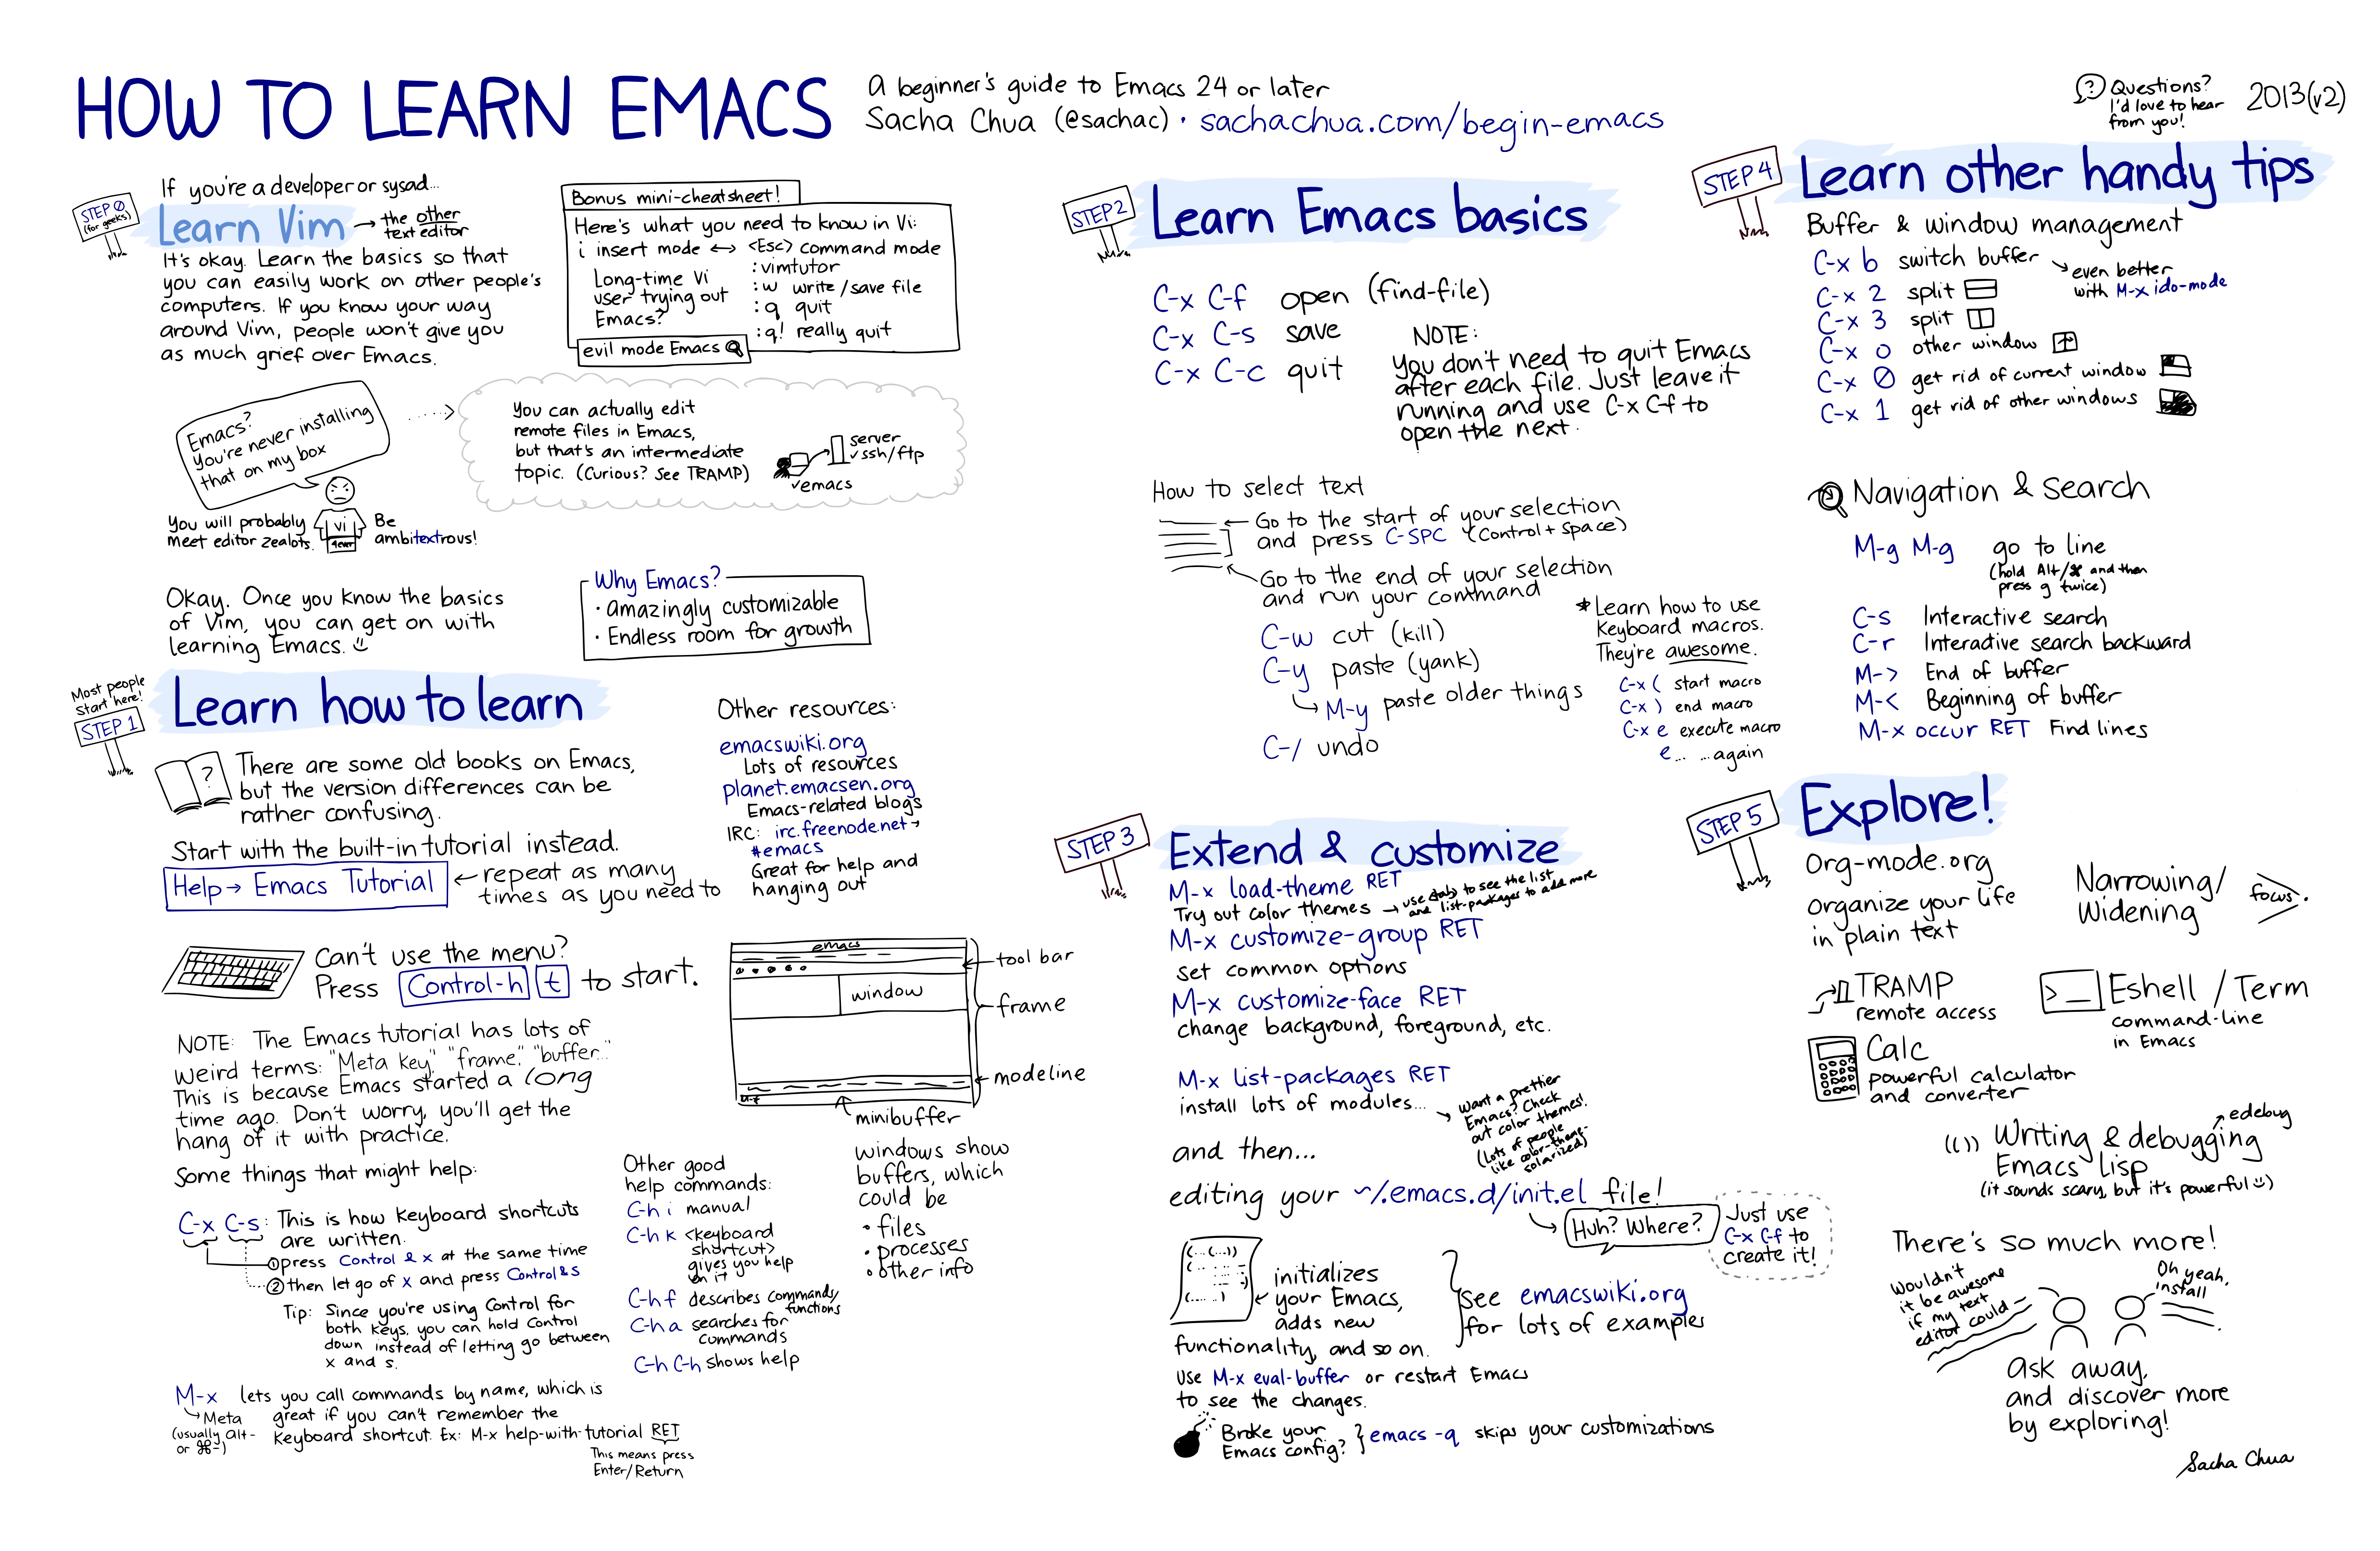 HOW TO LEARN EMACS
A beginner's guide to Emacs 24 or later
Sacha Chua (@sachac) · sachachua.com/begin-emacs
? Questions?
I'd love to hear
from you!
2013(v2)
STEP 0
(for geeks)
If you're a developer or sysad...
Learn Vim → the other
text editor
It's okay. Learn the basics so that
you can easily work on other people's
computers. If you know your way
around Vim, people won't give you
as much grief over Emacs.
Bonus mini-cheatsheet!
Here's what you need to know in Vi:
i insert mode ↔ <Esc> command mode
:vimtutor
:w write/save file
:q quit
:q! really quit
Long-time Vi
user trying out
Emacs?
evil mode Emacs
Emacs?
You're never installing
that on my box
vi
4ever
You will probably
meet editor zealots.
Be
ambitextrous!
You can actually edit
remote files in Emacs,
but that's an intermediate
topic. (Curious? See TRAMP)
emacs
server
ssh/ftp
Okay. Once you know the basics
of Vim, you can get on with
learning Emacs.
Why Emacs?
· amazingly customizable
· Endless room for growth
Most people
start here!
STEP 1
Learn how to learn
?
There are some old books on Emacs,
but the version differences can be
rather confusing.
Start with the built-in tutorial instead.
Help → Emacs Tutorial
← repeat as many
times as you need to
Other resources:
emacswiki.org
Lots of resources
planet.emacsen.org
Emacs-related blogs
IRC: irc.freenode.net →
#emacs
Great for help and
hanging out
Can't use the menu?
Press Control-h t to start.
NOTE: The Emacs tutorial has lots of
weird terms: "Meta key," "frame," "buffer..."
This is because Emacs started a long
time ago. Don't worry, you'll get the
hang of it with practice.
emacs
window
M-x
tool bar
frame
modeline
minibuffer
windows show
buffers, which
could be
· files
· processes
· other info
Some things that might help:
C-x C-s: This is how keyboard shortcuts
are written.
① press Control & x at the same time
② then let go of x and press Control & s
Tip: Since you're using Control for
both keys, you can hold Control
down instead of letting go between
x and s.
M-x lets you call commands by name, which is
great if you can't remember the
keyboard shortcut. Ex: M-x help-with-tutorial RET
Meta
(usually alt-
or ⌘-)
This means press
Enter/Return
Other good
help commands:
C-h i manual
C-h k <keyboard
shortcut>
gives you help
on it
C-h f describes commands/
functions
C-h a searches for
commands
C-h C-h shows help
STEP 2
Learn Emacs basics
C-x C-f open (find-file)
C-x C-s save
C-x C-c quit
NOTE:
You don't need to quit Emacs
after each file. Just leave it
running and use C-x C-f to
open the next.
How to select text
← Go to the start of your selection
and press C-SPC (Control + Space)
Go to the end of your selection
and run your command
C-w cut (kill)
C-y paste (yank)
M-y paste older things
C-/ undo
* Learn how to use
keyboard macros.
They're awesome.
C-x ( start macro
C-x ) end macro
C-x e execute macro
e... ...again
STEP 3
Extend & customize
M-x load-theme RET
Try out color themes → use <tab> to see the list
and list-packages to add more
M-x customize-group RET
set common options
M-x customize-face RET
change background, foreground, etc.
M-x list-packages RET
install lots of modules...
Want a prettier
Emacs? Check
out color themes!
(Lots of people
like color-theme-
solarized)
and then...
editing your ~/.emacs.d/init.el file!
Huh? Where?
Just use
C-x C-f to
create it!
(... (...))
(......)
initializes
your Emacs,
adds new
functionality, and so on.
see emacswiki.org
for lots of examples
use M-x eval-buffer or restart Emacs
to see the changes.
Broke your
Emacs config?
} emacs -q skips your customizations
STEP 4
Learn other handy tips
Buffer & window management
C-x b switch buffer
even better
with M-x ido-mode
C-x 2 split
C-x 3 split
C-x o other window
C-x 0 get rid of current window
C-x 1 get rid of other windows
Navigation & Search
M-g M-g go to line
(hold Alt/⌘ and then
press g twice)
C-s Interactive search
C-r Interactive search backward
M-> End of buffer
M-< Beginning of buffer
M-x occur RET Find lines
STEP 5
Explore!
Org-mode.org
organize your life
in plain text
Narrowing/
Widening
focus.
TRAMP
remote access
>_ Eshell / Term
command-line
in Emacs
Calc
powerful calculator
and converter
edebug
(()) Writing & debugging
Emacs Lisp
(it sounds scary, but it's powerful)
There's so much more!
Wouldn't
it be awesome
if my text
editor could
Oh yeah,
install
ask away,
and discover more
by exploring!
Sacha Chua